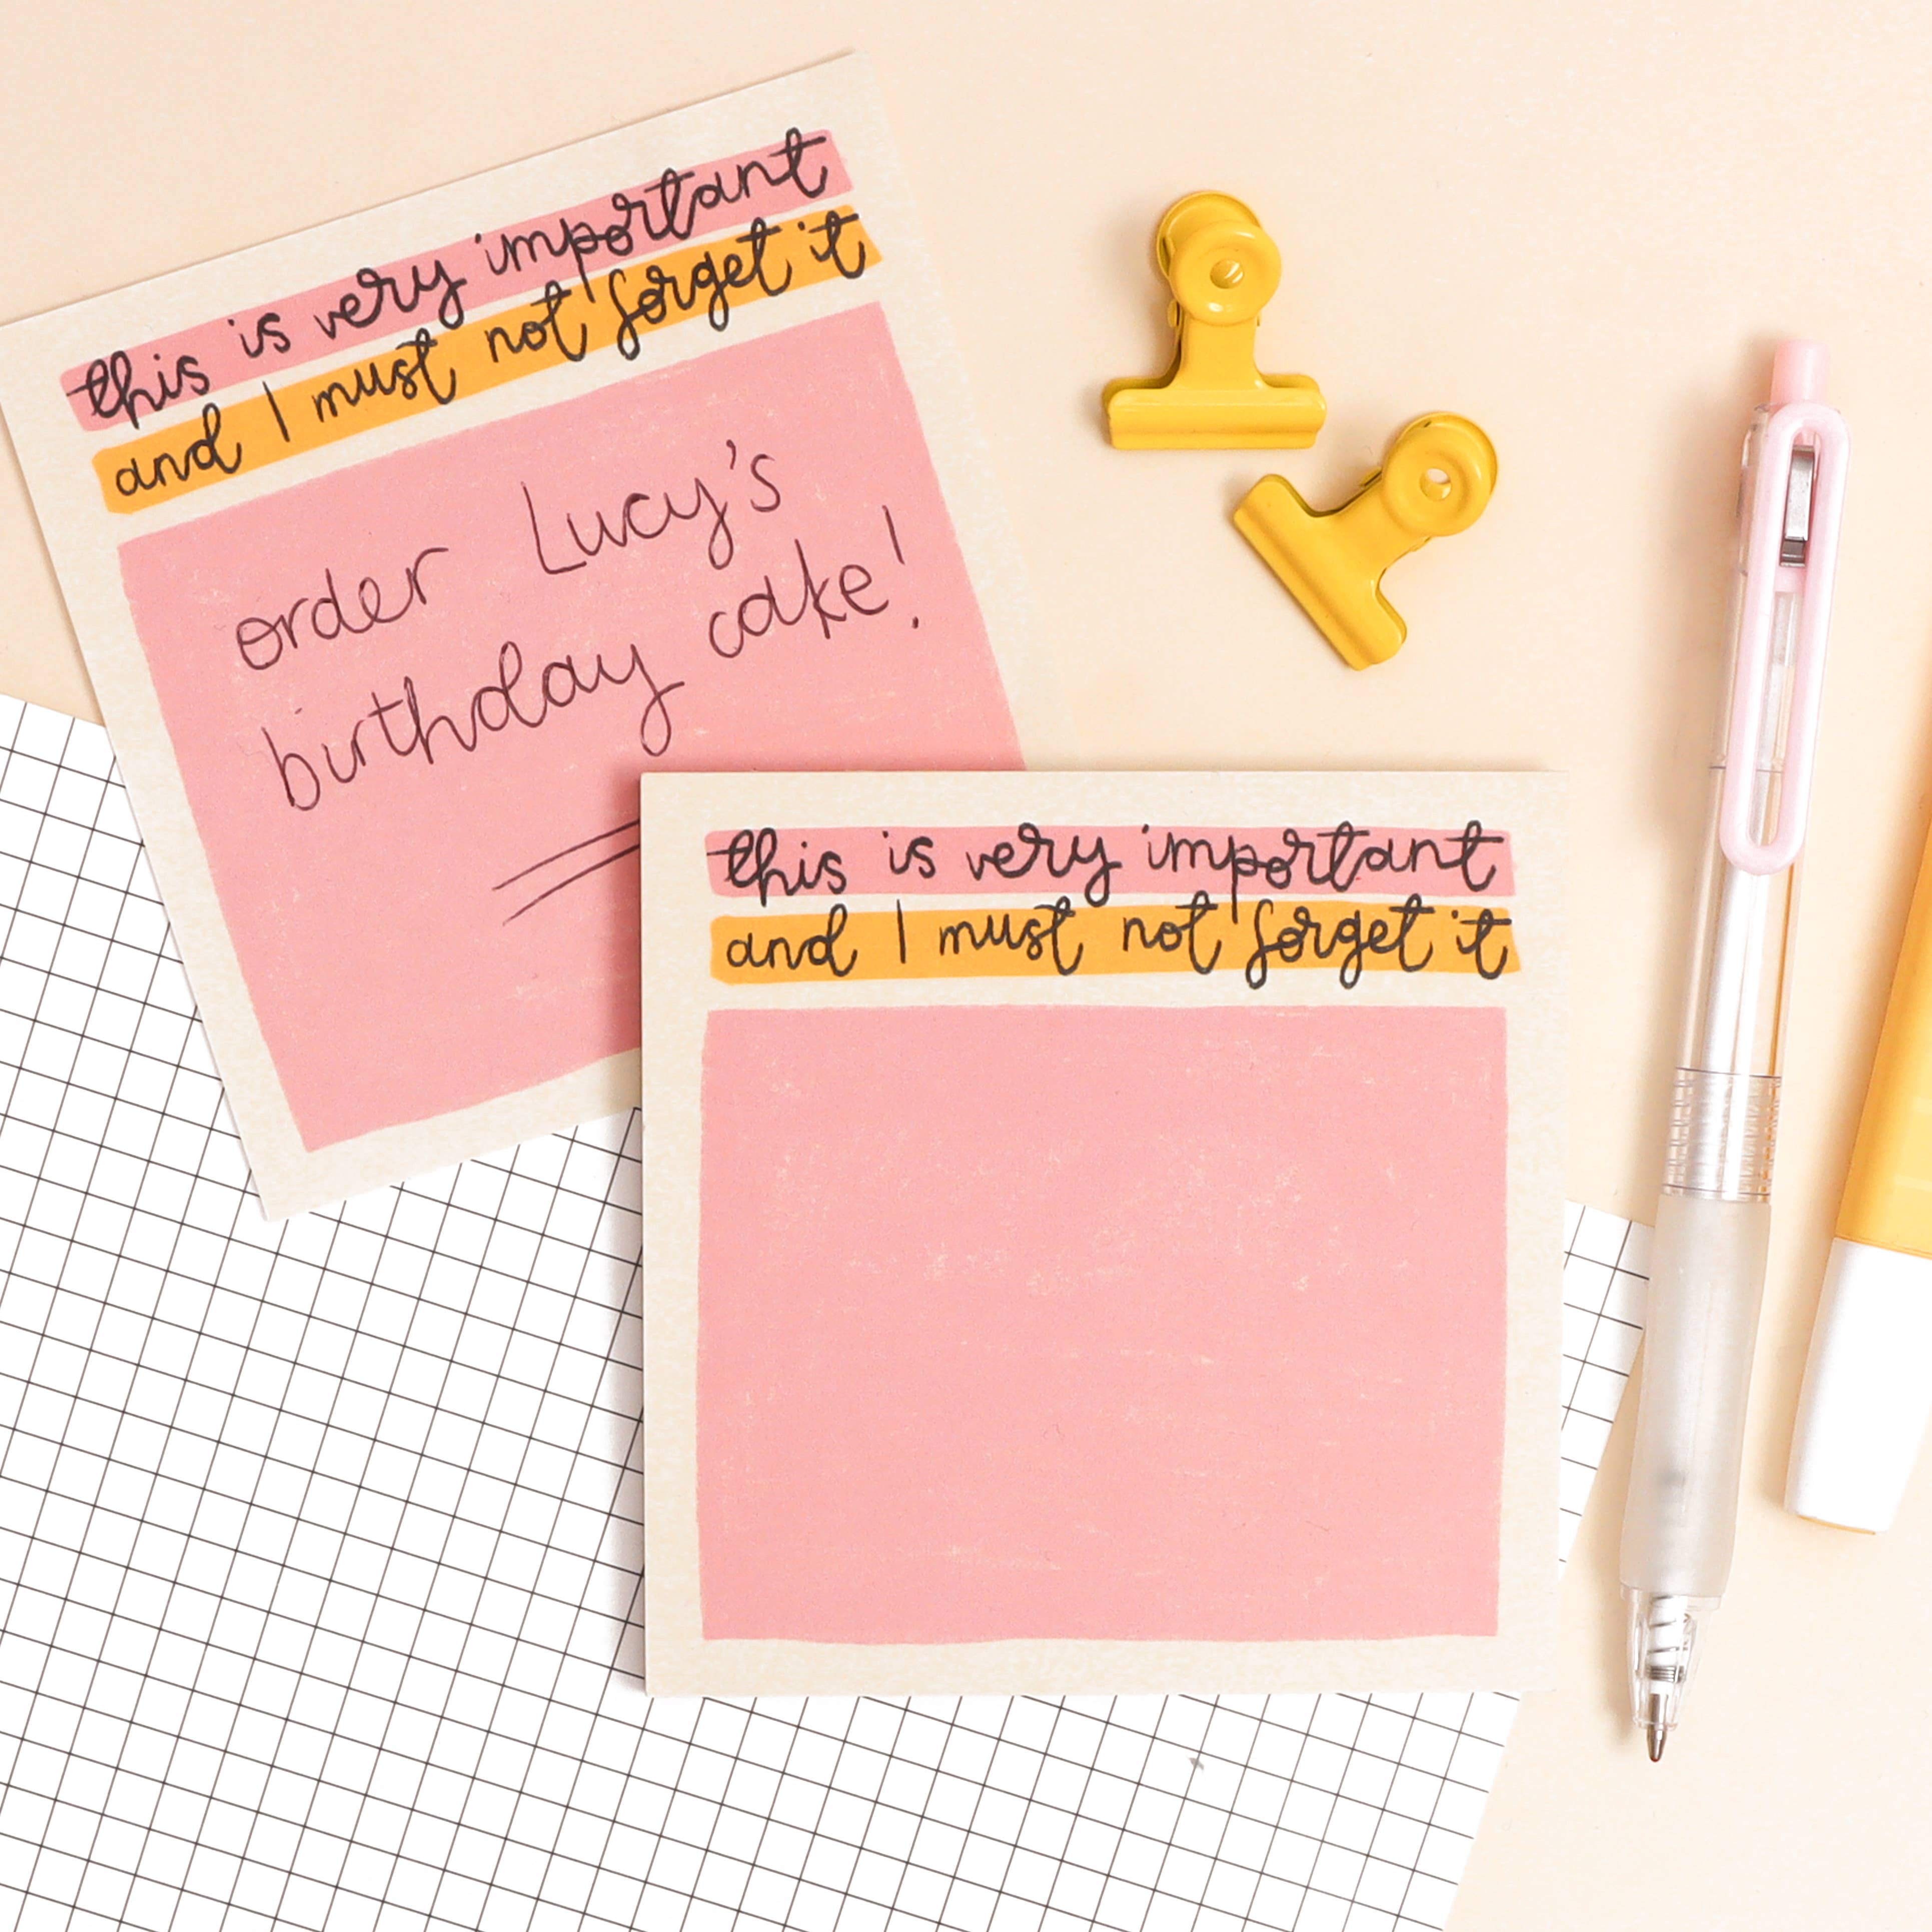 this is very important
and I must not forget it
order Lucy's
birthday cake!
this is very important
and I must not forget it